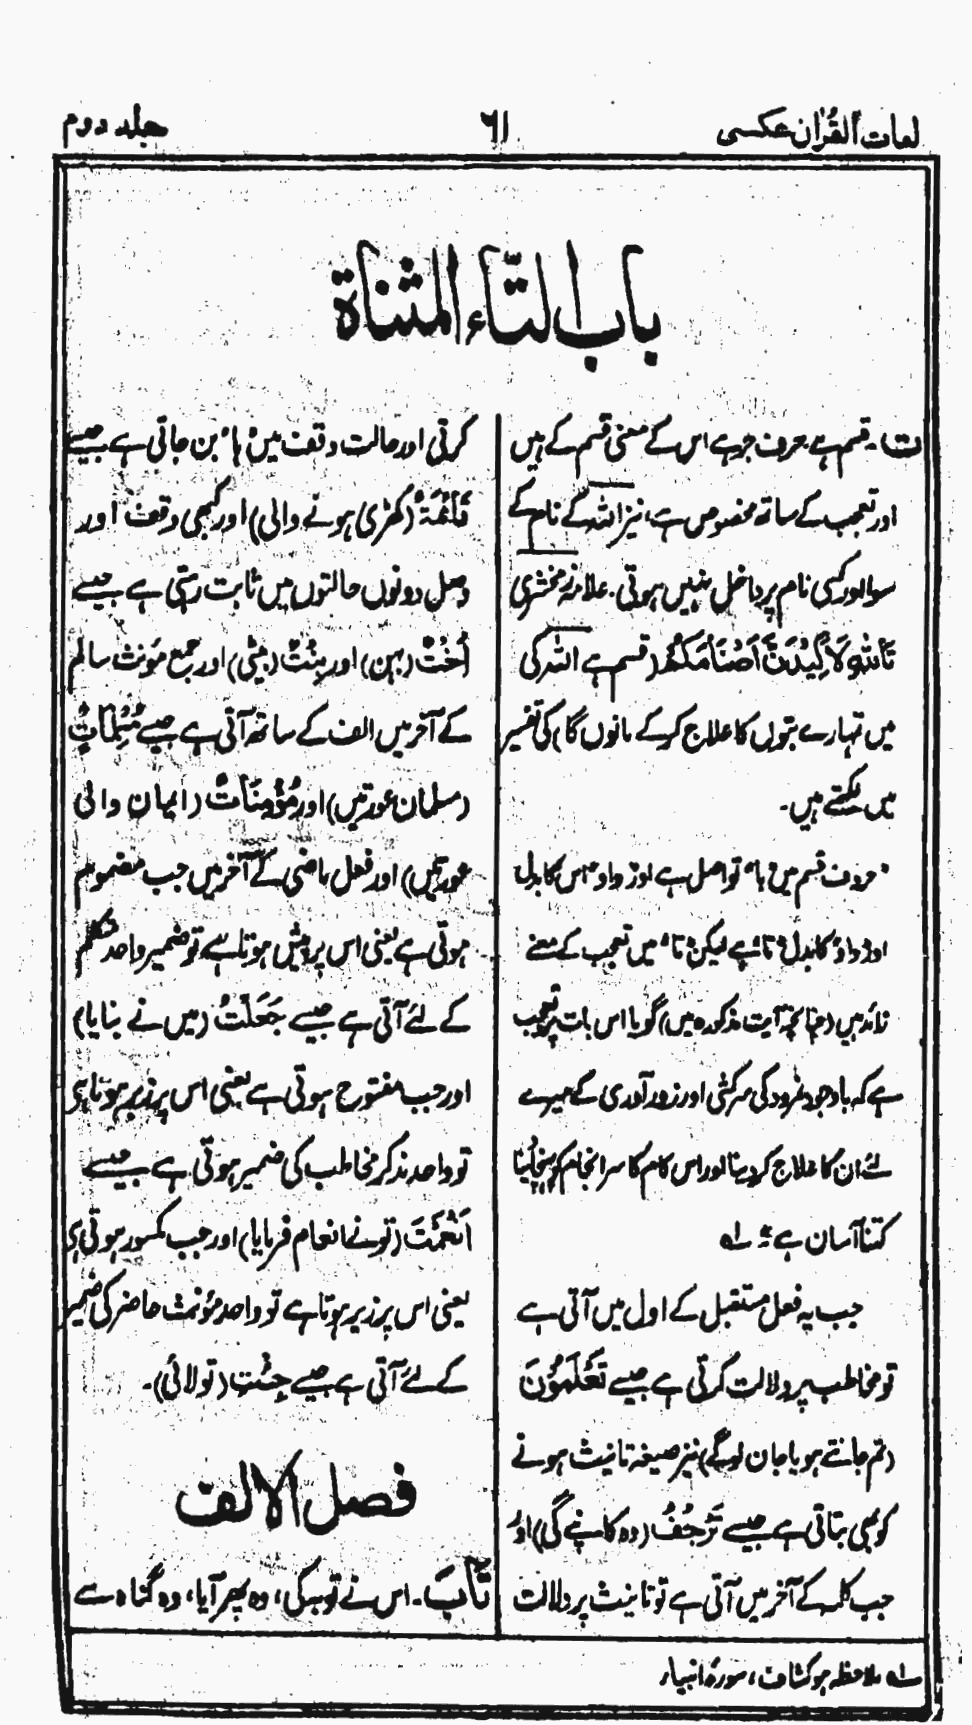 لغات القُرْاٰن عکسی
٦١
جلد دوم
باب التّاء المثناة
ت۔ قسم ہے، حرف جر ہے اس کے معنی قسم کے ہیں
اور تعجب کے ساتھ مخصوص ہے، نیز اللہ کے نام کے
سوا اور کسی نام پر داخل نہیں ہوتی۔ علامہ زمخشری
تَاللّٰهِ لَاَكِيْدَنَّ اَصْنَامَكُمْ (قسم ہے اللہ کی
میں تمہارے بتوں کا علاج کر کے مانوں گا) کی تفسیر
میں لکھتے ہیں۔
"حروف قسم میں "با" تو اصل ہے اور "واو" اس کا بدل
اور "واو" کا بدل "تا" ہے لیکن "تا" میں تعجب کے معنے
زائد ہیں (چنانچہ آیت مذکورہ میں) گویا اس بات پر تعجب
ہے کہ باوجود نمرود کی سرکشی اور زور آوری کے میرے
لئے ان کا علاج کر دینا اور اس کام کا سر انجام کو پہنچا دینا
کتنا آسان ہے" لہ
جب یہ فعل مستقبل کے اول میں آتی ہے
تو مخاطب پر دلالت کرتی ہے جیسے تَعْلَمُوْنَ
(تم جانتے ہو یا جان لو گے) نیز صیغہ تانیث ہونے
کو بھی بتاتی ہے جیسے تَرْجُفُ (وہ کانپے گی) اور
جب کلمہ کے آخر میں آتی ہے تو تانیث پر دلالت
کرتی اور حالت وقف میں "ہا" بن جاتی ہے جیسے
قَائِمَةٌ (کھڑی ہونے والی) اور کبھی وقف اور
وصل دونوں حالتوں میں ثابت رہتی ہے جیسے
اُخْتٌ (بہن) اور بِنْتٌ (بیٹی) اور جمع مؤنث سالم
کے آخر میں الف کے ساتھ آتی ہے جیسے مُسْلِمَاتٌ
(مسلمان عورتیں) اور مُؤْمِنَاتٌ (ایمان والی
عورتیں) اور فعل ماضی کے آخر میں جب مضموم
ہوتی ہے یعنی اس پر پیش ہوتا ہے تو ضمیر واحد متکلم
کے لئے آتی ہے جیسے جَعَلْتُ (میں نے بنایا)
اور جب مفتوح ہوتی ہے یعنی اس پر زبر ہوتا ہے
تو واحد مذکر مخاطب کی ضمیر ہوتی ہے جیسے
اَنْعَمْتَ (تو نے انعام فرمایا) اور جب مکسور ہوتی ہے
یعنی اس پر زیر ہوتا ہے تو واحد مؤنث حاضر کی ضمیر
کے لئے آتی ہے جیسے جِئْتِ (تو لائی)۔
فصل الالف
تَابَ۔ اس نے توبہ کی، وہ پھر آیا، وہ گناہ سے
لہ ملاحظہ ہو کشاف، سورۂ انبیاء